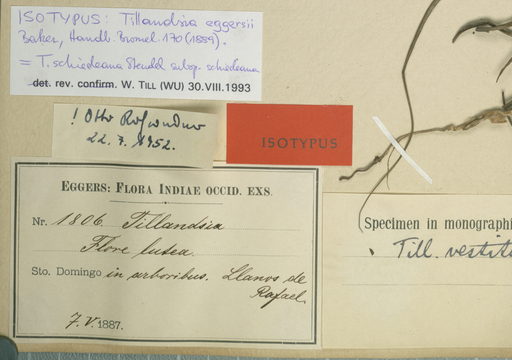 ISOTYPUS: Tillandsia eggersii
Baker, Handb. Bromel. 170 (1889).
= T. schiedeana Steudel subsp. schiedeana
det. rev. confirm. W. TILL (WU) 30.VIII.1993
! Otto
22. 7. 1952.
ISOTYPUS
EGGERS: FLORA INDIAE OCCID. EXS.
Nr. 1806. Tillandsia
Flore lutea.
Sto. Domingo in arboribus. Llanos de
Rafael.
7. V. 1887.
Specimen in monographi
Till. vestita